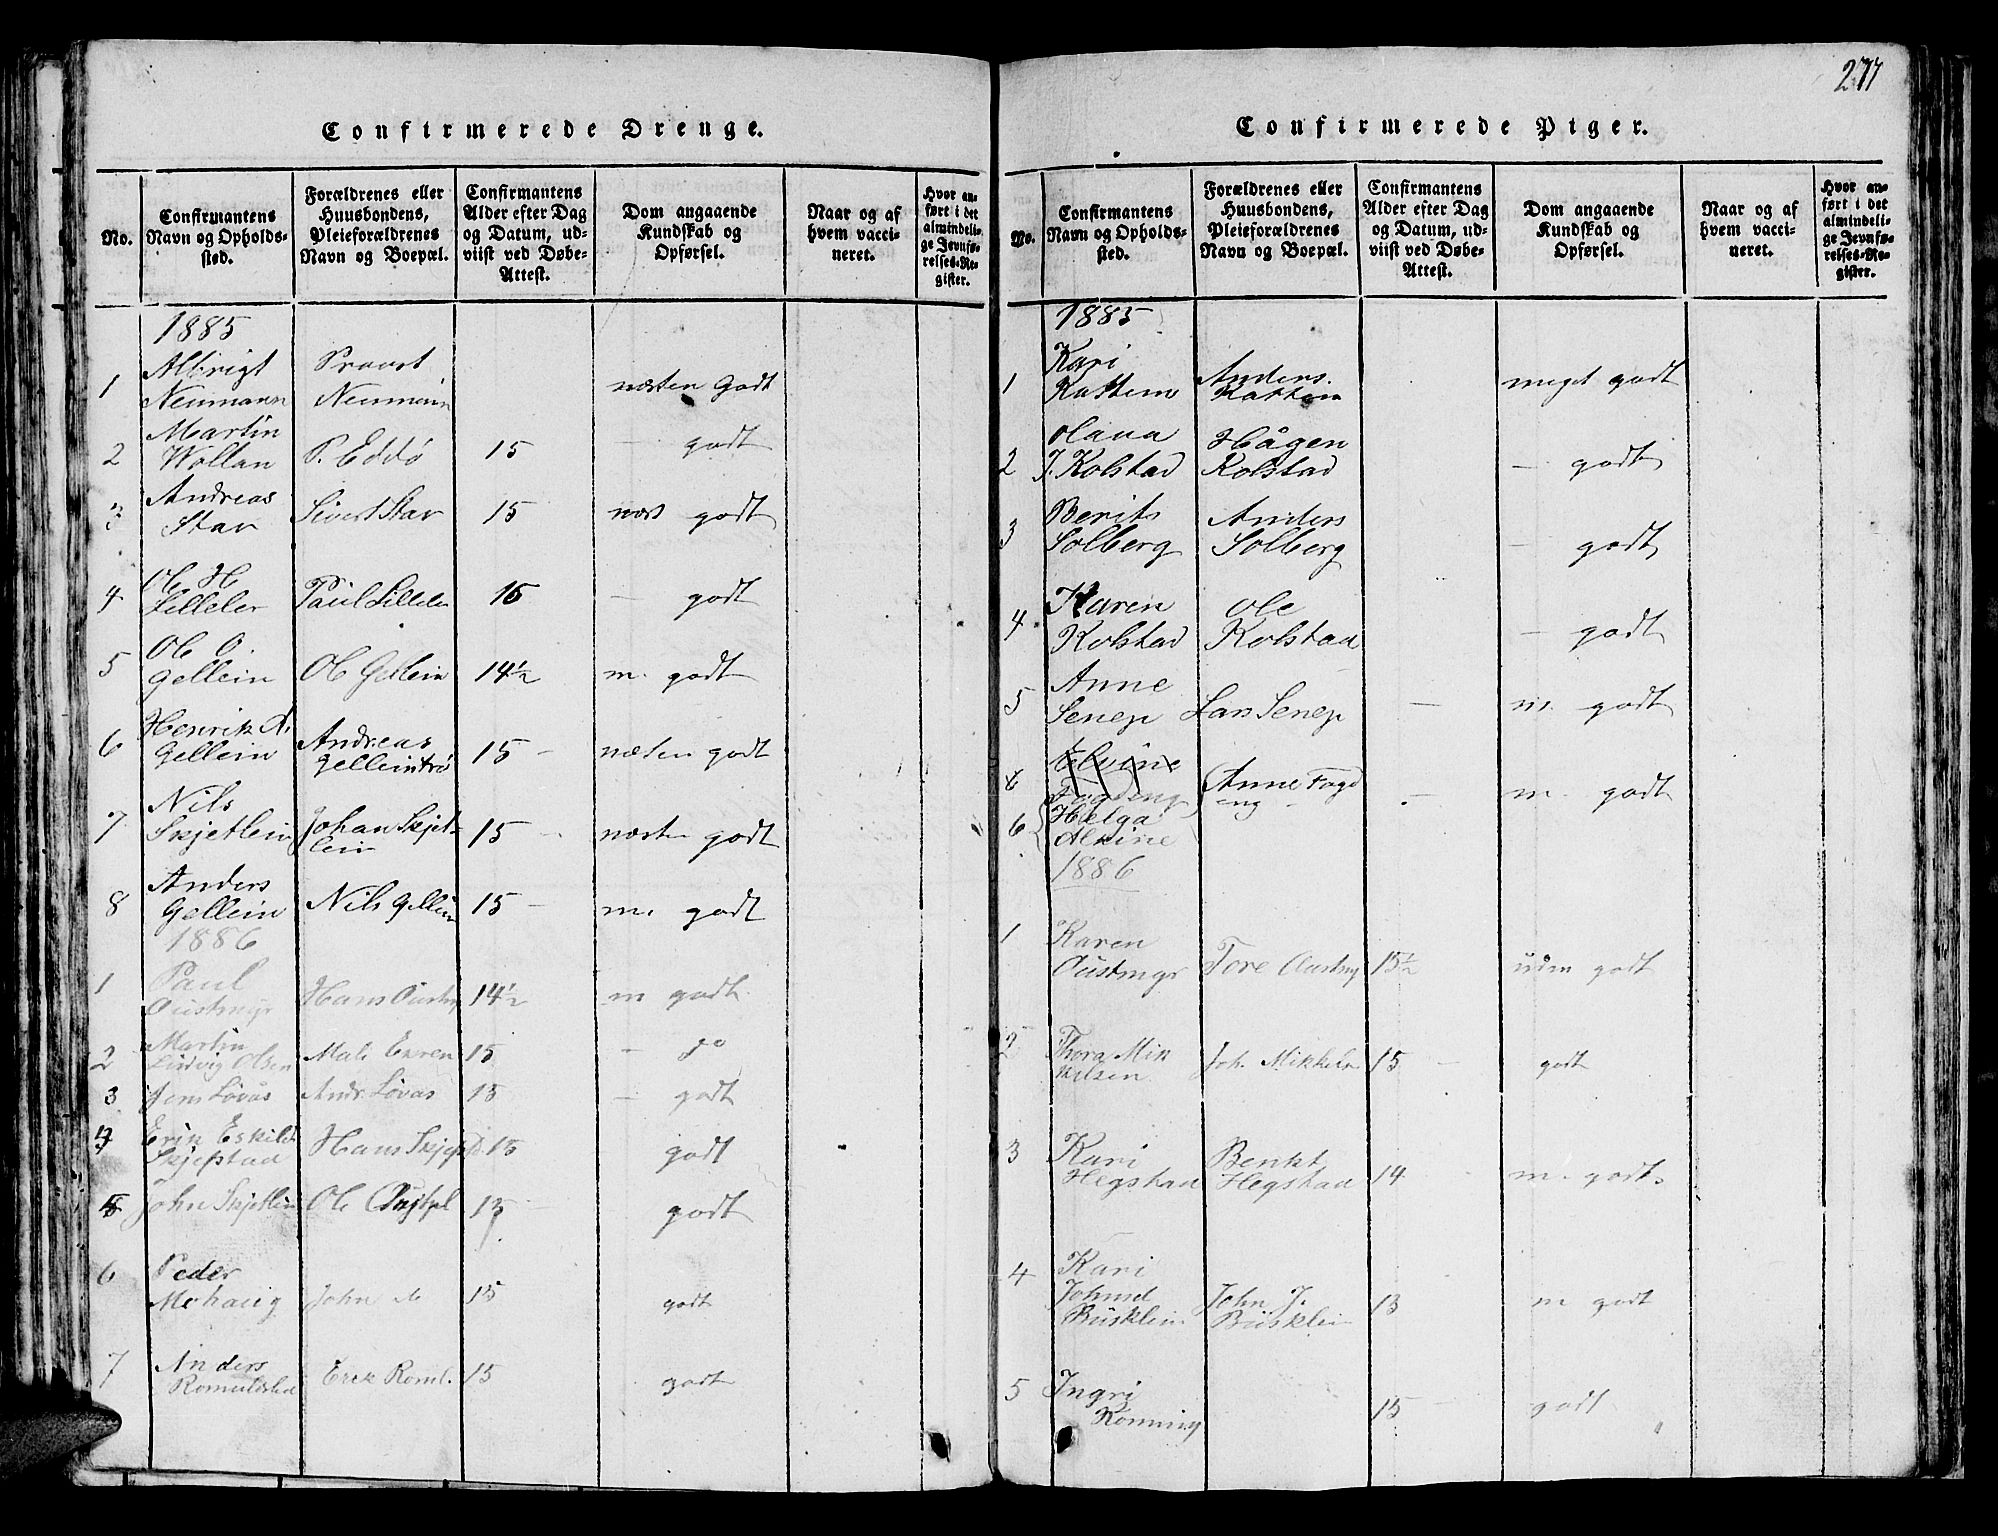 277
Confirmerede Drenge.
No.
Confirmantens
Navn og Opholds-
sted.
Forældrenes eller
Huusbondens,
Pleieforældrenes
Navn og Boepæl.
Confirmantens
Alder efter Dag
og Datum, ud-
viist ved Døbe-
Attest.
Dom angaaende
Kundskab og
Opførsel.
Naar og af
hvem vacci-
neret.
Hvor an-
ført i det
almindeli-
ge Jevnfø-
relses-Re-
gister.
1885
1 Albrigt Provst
Neumann Neumann næsten Godt
2 Martin
Wollan P. Eddø 15 — godt
3 Andreas
Stav Sivert Stav 15 næst godt
4 Ole H
Lilleler Paul Lilleler 15 — godt
5 Ole O.
Gellein Ole Gellein 14½ m. godt
6 Henrik A. Andreas
Gellein Gelleintrø 15 — næsten godt
7 Nils
Skjetlein Johan Skjet- 15 næsten godt
lein
8 Anders
Gellein Nils Gellein 15 — m. godt
1886
1 Paul
Oustmyr Hans Oustmy 14½ m godt
2 Martin
Ludvig Olsen 15 — do
3 Jens Løvås Andr. Løvas 15 — godt
4 Eskild
Skjefstad Hans Skjefst 15 godt
5 John Skjetlein Ole 15 — godt
6 Peder
Mohaug John do 15 godt
7 Anders
Romulslid Erik Roml. 15 godt
Confirmerede Piger.
No.
Confirmantens
Navn og Opholds-
sted.
Forældrenes eller
Huusbondens,
Pleieforældrenes
Navn og Boepæl.
Confirmantens
Alder efter Dag
og Datum, ud-
viist ved Døbe-
Attest.
Dom angaaende
Kundskab og
Opførsel.
Naar og af
hvem vacci-
neret.
Hvor an-
ført i det
almindeli-
ge Jevnfø-
relses-Re-
gister.
1885
1 Kari Anders
Kattem Kattem meget godt
2 Olava Hågen
J. Kolstad Kolstad — godt
3 Berit Anders
Solberg Solberg — godt
4 Karen Ole
Kolstad Kolstad — godt
5 Anne
Senep Lars Senep — m. godt
6 Elvine Anne Fagd
Fagdeng eng — m. godt
6 Helga
Alvine
1886
1 Karen
Oustmyr Tore Oustmy 15½ uden godt
2 Thora Mik
kelsen Joh. Mikkels 15 — godt
3 Kari Benkt
Hegstad Hegstad 14 m. godt
4 Kari
Johnsd John J.
Busklein Busklein 15 m godt
5 Ingri
Rønning 15 — godt